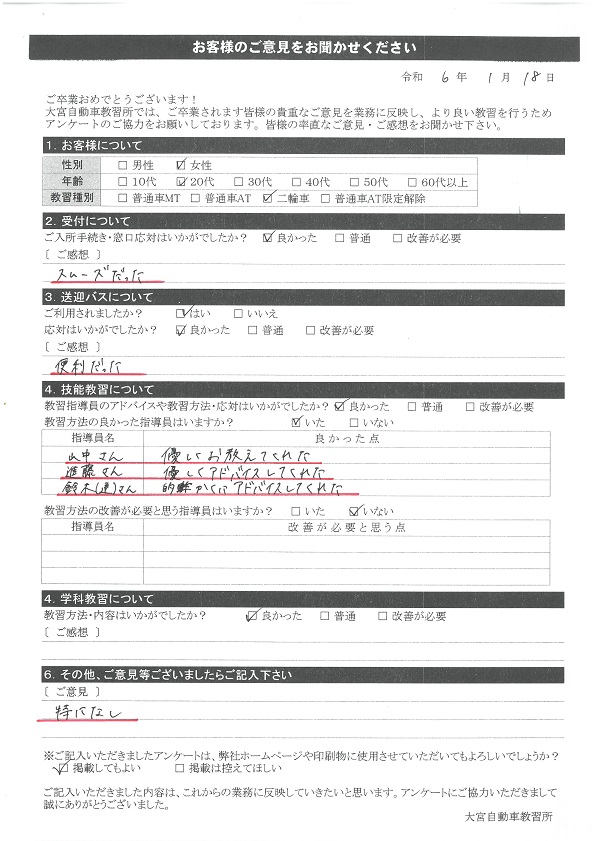 お客様のご意見をお聞かせください
令和 6 年 1 月 18 日
ご卒業おめでとうございます！
大宮自動車教習所では、ご卒業されます皆様の貴重なご意見を業務に反映し、より良い教習を行うため
アンケートのご協力をお願いしております。皆様の率直なご意見・ご感想をお聞かせ下さい。
1. お客様について
性別 □ 男性 ☑ 女性
年齢 □ 10代 ☑ 20代 □ 30代 □ 40代 □ 50代 □ 60代以上
教習種別 □ 普通車MT □ 普通車AT ☑ 二輪車 □ 普通車AT限定解除
2. 受付について
ご入所手続き・窓口応対はいかがでしたか？ ☑ 良かった □ 普通 □ 改善が必要
〔 ご感想 〕
スムーズだった
3. 送迎バスについて
ご利用されましたか？ ☑ はい □ いいえ
応対はいかがでしたか？ ☑ 良かった □ 普通 □ 改善が必要
〔 ご感想 〕
便利だった
4. 技能教習について
教習指導員のアドバイスや教習方法・応対はいかがでしたか？ ☑ 良かった □ 普通 □ 改善が必要
教習方法の良かった指導員はいますか？ ☑ いた □ いない
指導員名 良かった点
山中さん 優しくお教えてくれた
進藤さん 優しくアドバイスしてくれた
鈴木(達)さん 的確かくにアドバイスしてくれた
教習方法の改善が必要と思う指導員はいますか？ □ いた ☑ いない
指導員名 改善が必要と思う点
4. 学科教習について
教習方法・内容はいかがでしたか？ ☑ 良かった □ 普通 □ 改善が必要
〔 ご感想 〕
6. その他、ご意見等ございましたらご記入下さい
〔 ご意見 〕
特になし
※ご記入いただきましたアンケートは、弊社ホームページや印刷物に使用させていただいてもよろしいでしょうか？
☑ 掲載してもよい □ 掲載は控えてほしい
ご記入いただきました内容は、これからの業務に反映していきたいと思います。アンケートにご協力いただきまして
誠にありがとうございました。
大宮自動車教習所